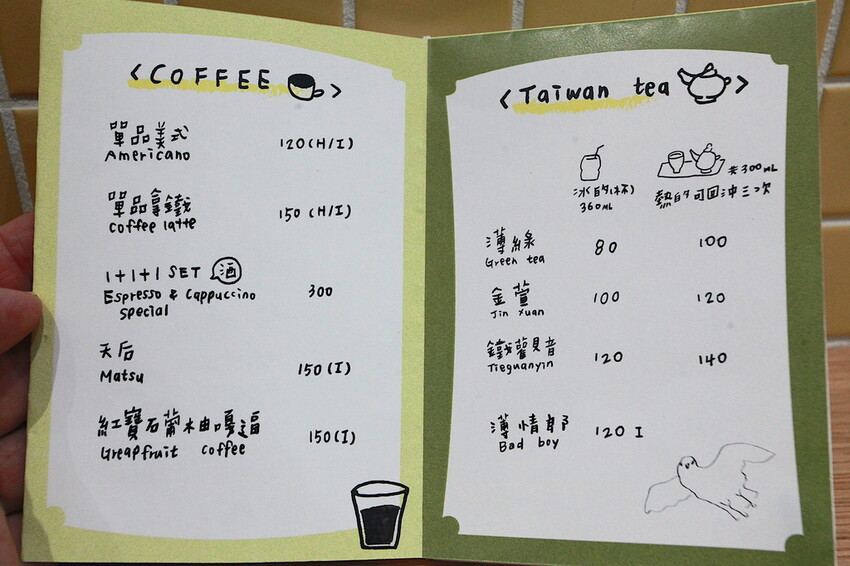 <COFFEE>
單品美式 120(H/I)
Americano
單品拿鐵 150 (H/I)
coffee latte
1+1+1 SET 酒
Espresso & Cappuccino 300
special
天后
Matsu 150(I)
紅寶石葡柚嘎逼 150(I)
Greapfruit coffee
<Taiwan tea>
共300mL
冰的(杯) 熱的可回沖三次
360mL
薄綠 80 100
Green tea
金萱 100 120
Jin Xuan
鐵觀音 120 140
Tieguanyin
薄情郎 120 I
Bad boy